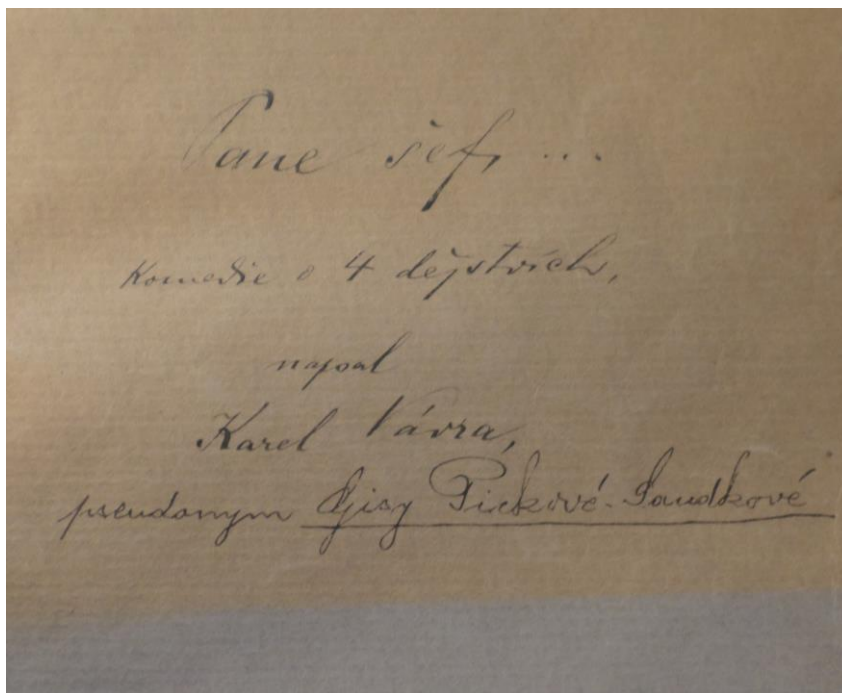 Pane šéf, ...
Komedie o 4 dějstvích,
napsal
Karel Vávra,
pseudonym Gisy Pickové-Saudkové